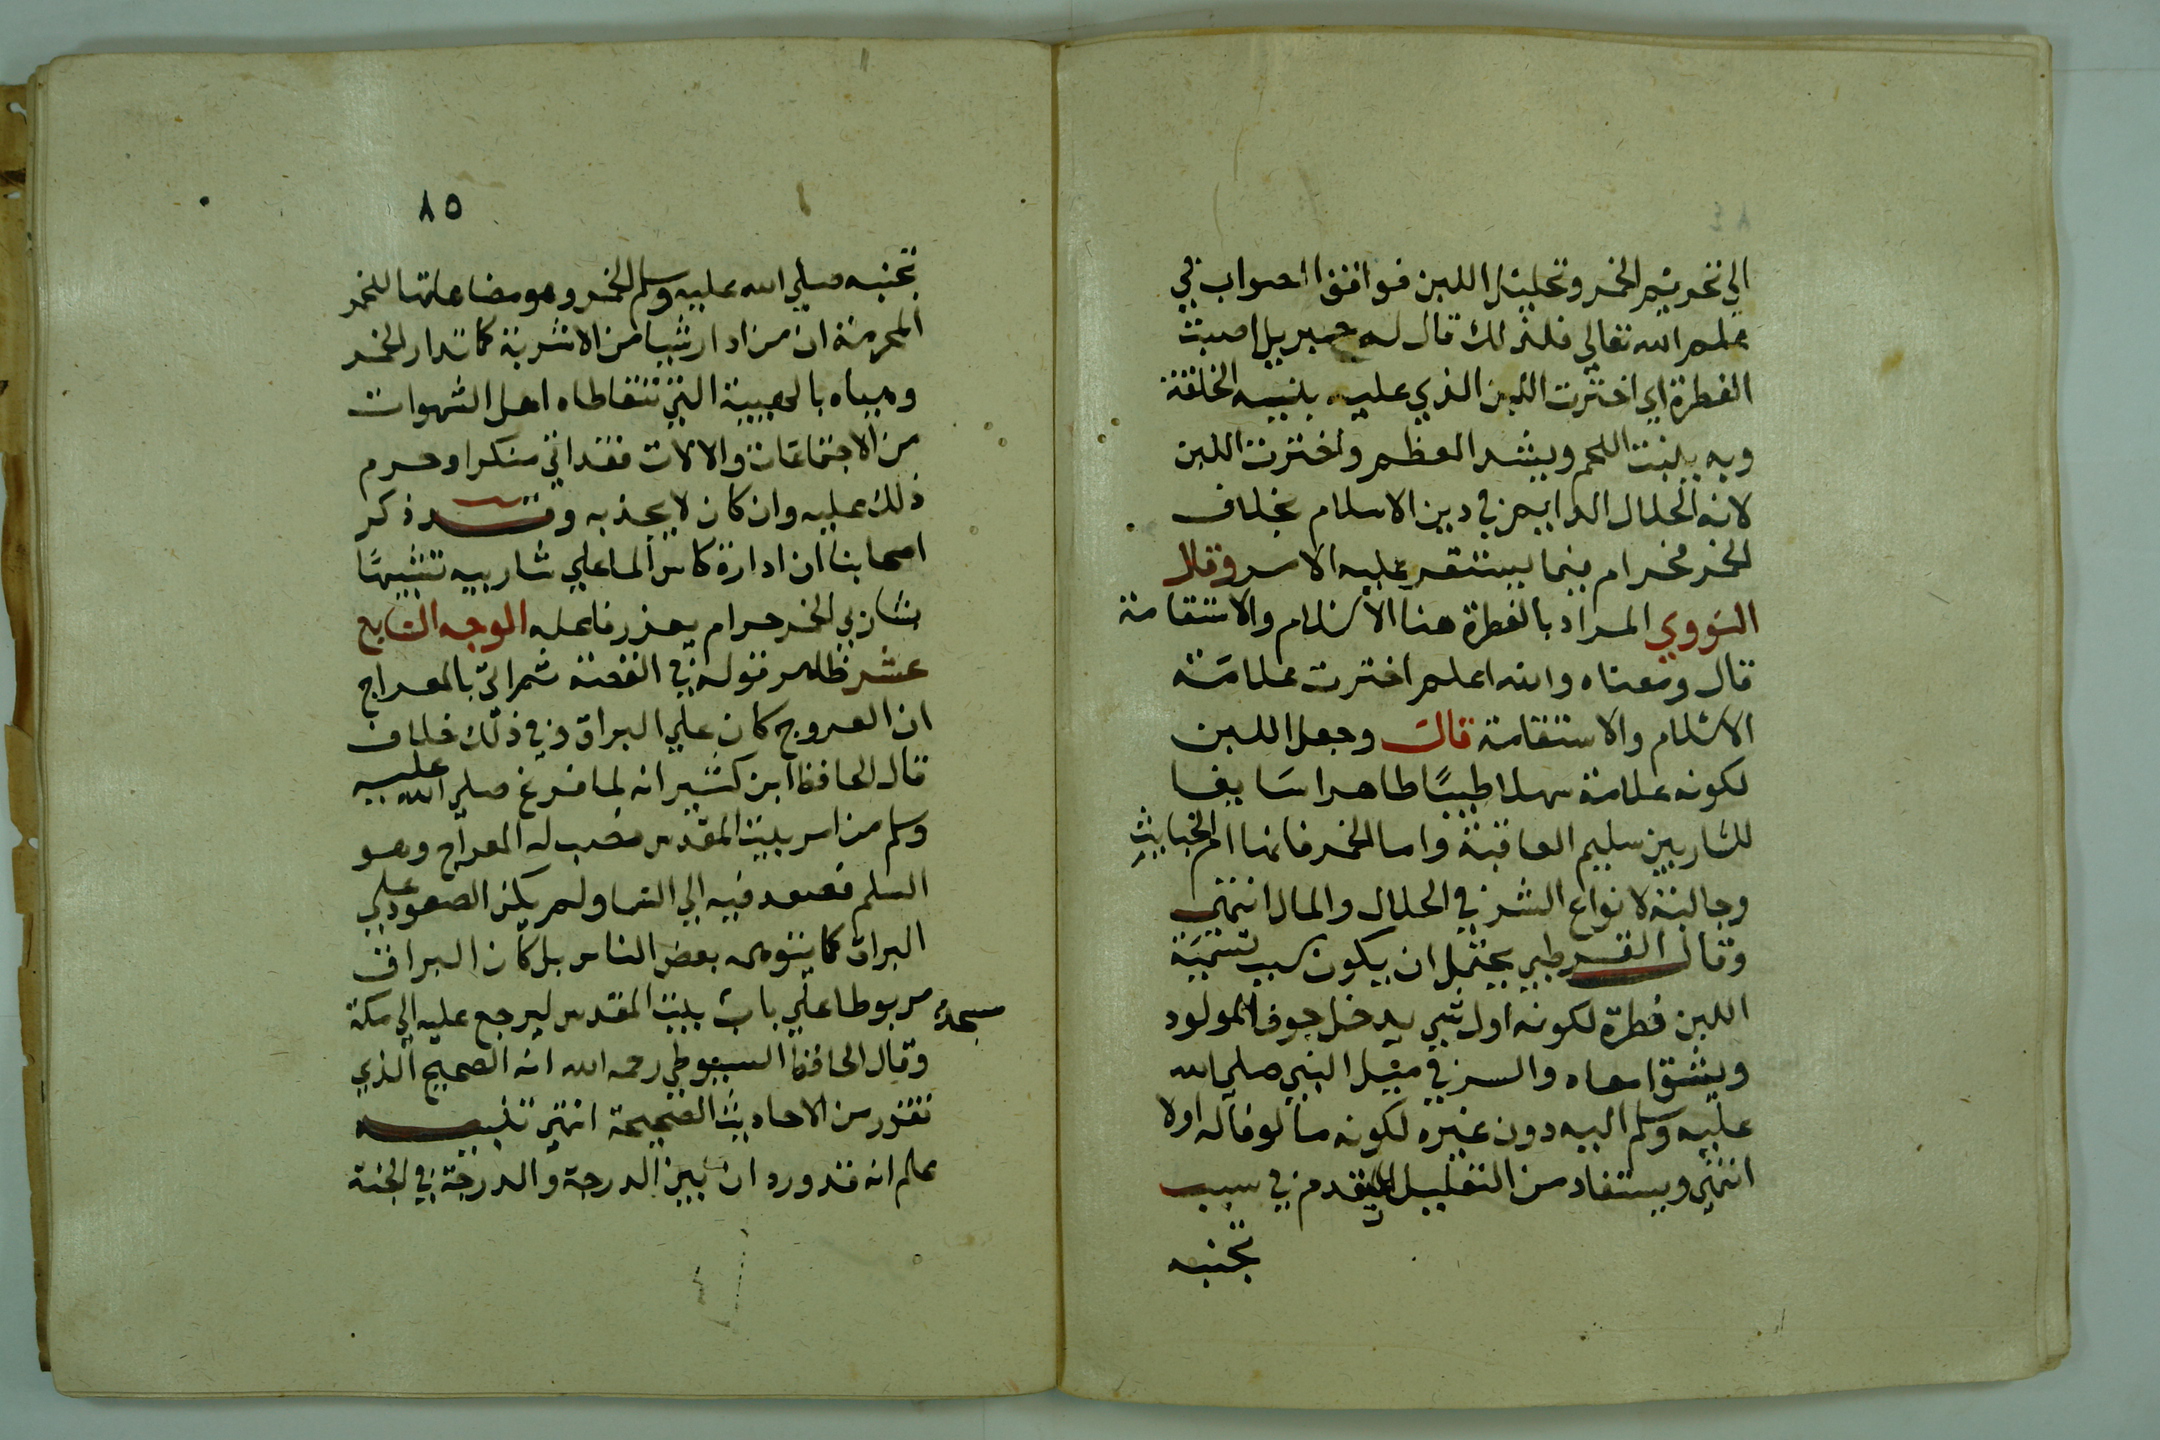 ٨٤
الي تحريم الخمر وتحليل اللبن فوافق الصواب في
علم الله تعالي فلذلك قال له جبريل اصبت
الفطرة اي اخترت اللبن الذي عليه بنيه الخلقة
وبه ينبت اللحم وينشر العظم واخترت اللبن
لانه الحلال الدايم في دين الاسلام بخلاف
الخمر فحرام فيما يستقر عليه الامر وقال
النووي المراد بالفطرة هنا الاسلام والاستقامة
قال ومعناه والله اعلم اخترت علامة
الاسلام والاستقامة قال وجعل اللبن
لكونه علامة سهلا طيبًا طاهرا سايغا
للشاربين سليم العاقبة واما الخمر فانها ام الخبايث
وجالبة لانواع الشر في الحال والمال انتهي
وقال القرطبي يحتمل ان يكون سبب تسمية
اللبن فطرة لكونه اول شي يدخل جوف المولود
ويشق امعاه والسر في ميل النبي صلي الله
عليه وسلم اليه دون غيره لكونه مالوفا له اولا
انتهي ويستفاد من التعليل المتقدم في سبب
تجنبه
٨٥
تجنبه صلي الله عليه وسلم الخمر وهو مضاهاتها للخمر
المحرمة ان من ادار شيا من الاشربة كما تدار الخمر
وهياه بالهيية التي تتعاطاه اهل الشهوات
من الاجتماعات والالات فقد اتي منكرا وحرم
ذلك عليه وان كان لا يحد به وقد ذكر
اصحابنا ان ادارة كاس الما علي شاربيه تشبيهًا
بشاربي الخمر حرام يعزر فاعله الوجه السابع
عشر ظاهر قوله في القصة ثم اتي بالمعراج
ان العروج كان علي البراق وفي ذلك خلاف
قال الحافظ ابن كثير انه لما فرغ صلي الله عليه
وسلم من امر بيت المقدس نصب له المعراج وهو
السلم فصعد فيه الي السما ولم يكن الصعود علي
البراق كما يتوهمه بعض الناس بل كان البراق
مربوطا علي باب مسجد بيت المقدس ليرجع عليه الي مكة
وقال الحافظ السيوطي رحمه الله انه الصحيح الذي
تقرر من الاحاديث الصحيحة انتهي تنبيه
علم انه قد ورد ان بين الدرجة والدرجة في الجنة